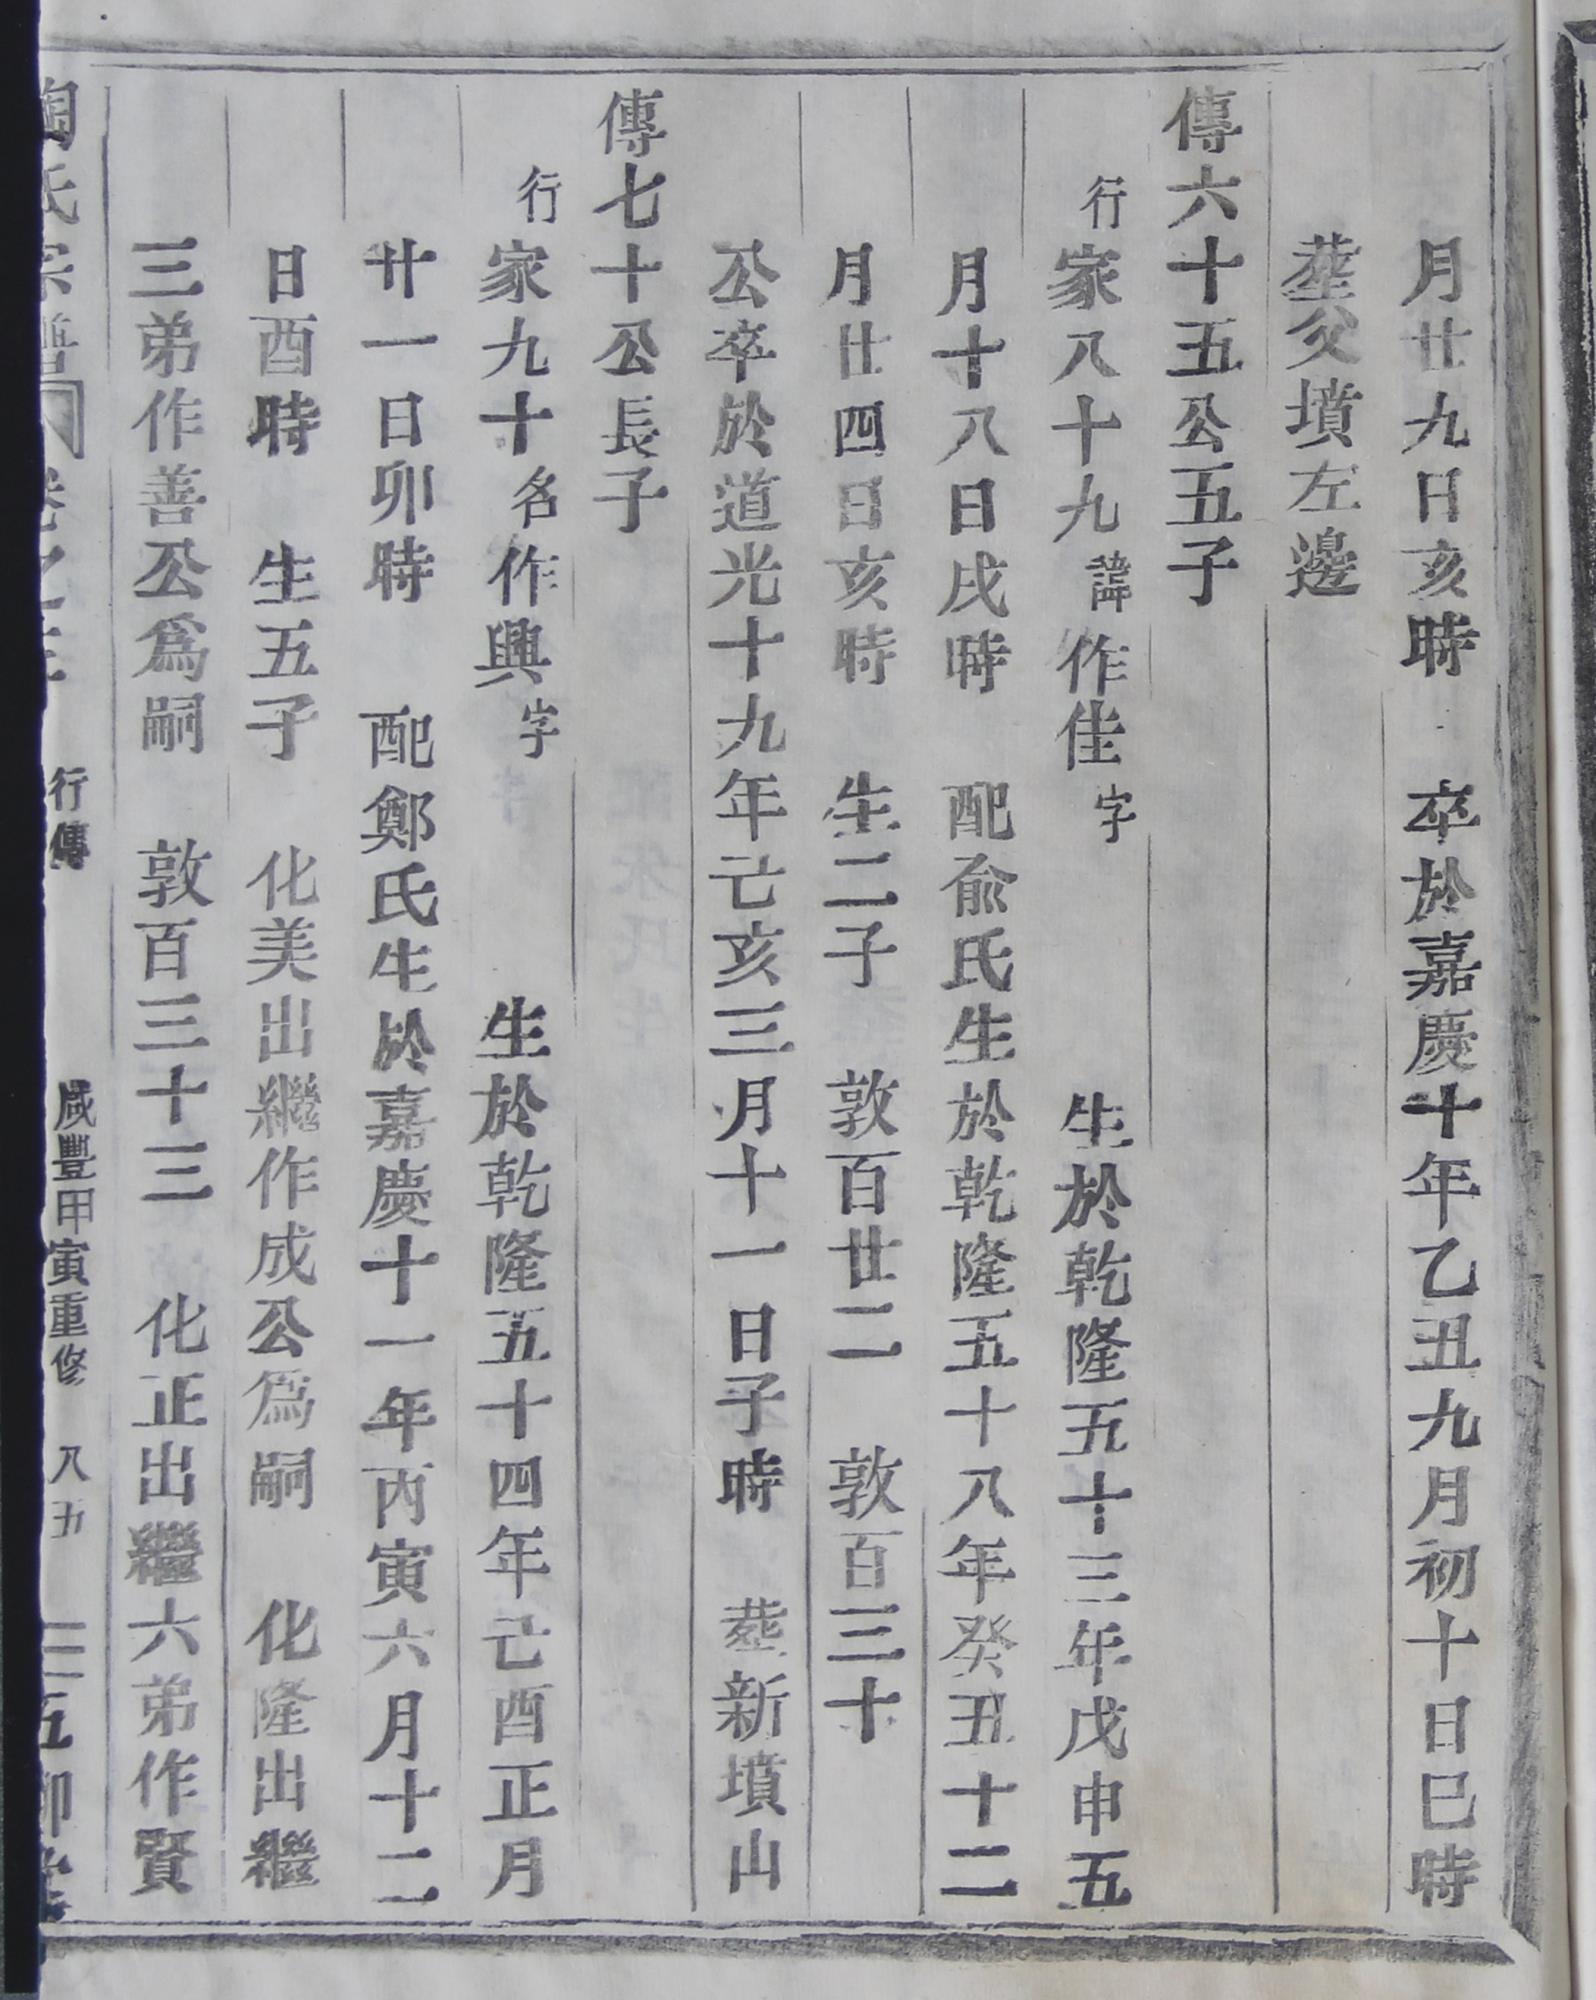 月廿九日亥時 卒於嘉慶十年乙丑九月初十日巳時
塟父墳左邊
傳六十五公五子
行家八十九諱作佳字 生於乾隆五十三年戊申五
月十八日戌時 配俞氏生於乾隆五十八年癸丑十二
月廿四日亥時 生二子 敦百廿二 敦百三十
公卒於道光十九年己亥三月十一日子時 塟新墳山
傳七十公長子
行家九十名作興字 生於乾隆五十四年己酉正月
廿一日卯時 配鄭氏生於嘉慶十一年丙寅六月十二
日酉時 生五子 化美出繼作成公爲嗣 化隆出繼
三弟作善公爲嗣 敦百三十三 化正出繼六弟作賢
陶氏宗譜 卷之 行傳 咸豐甲寅重修 八五 五柳堂